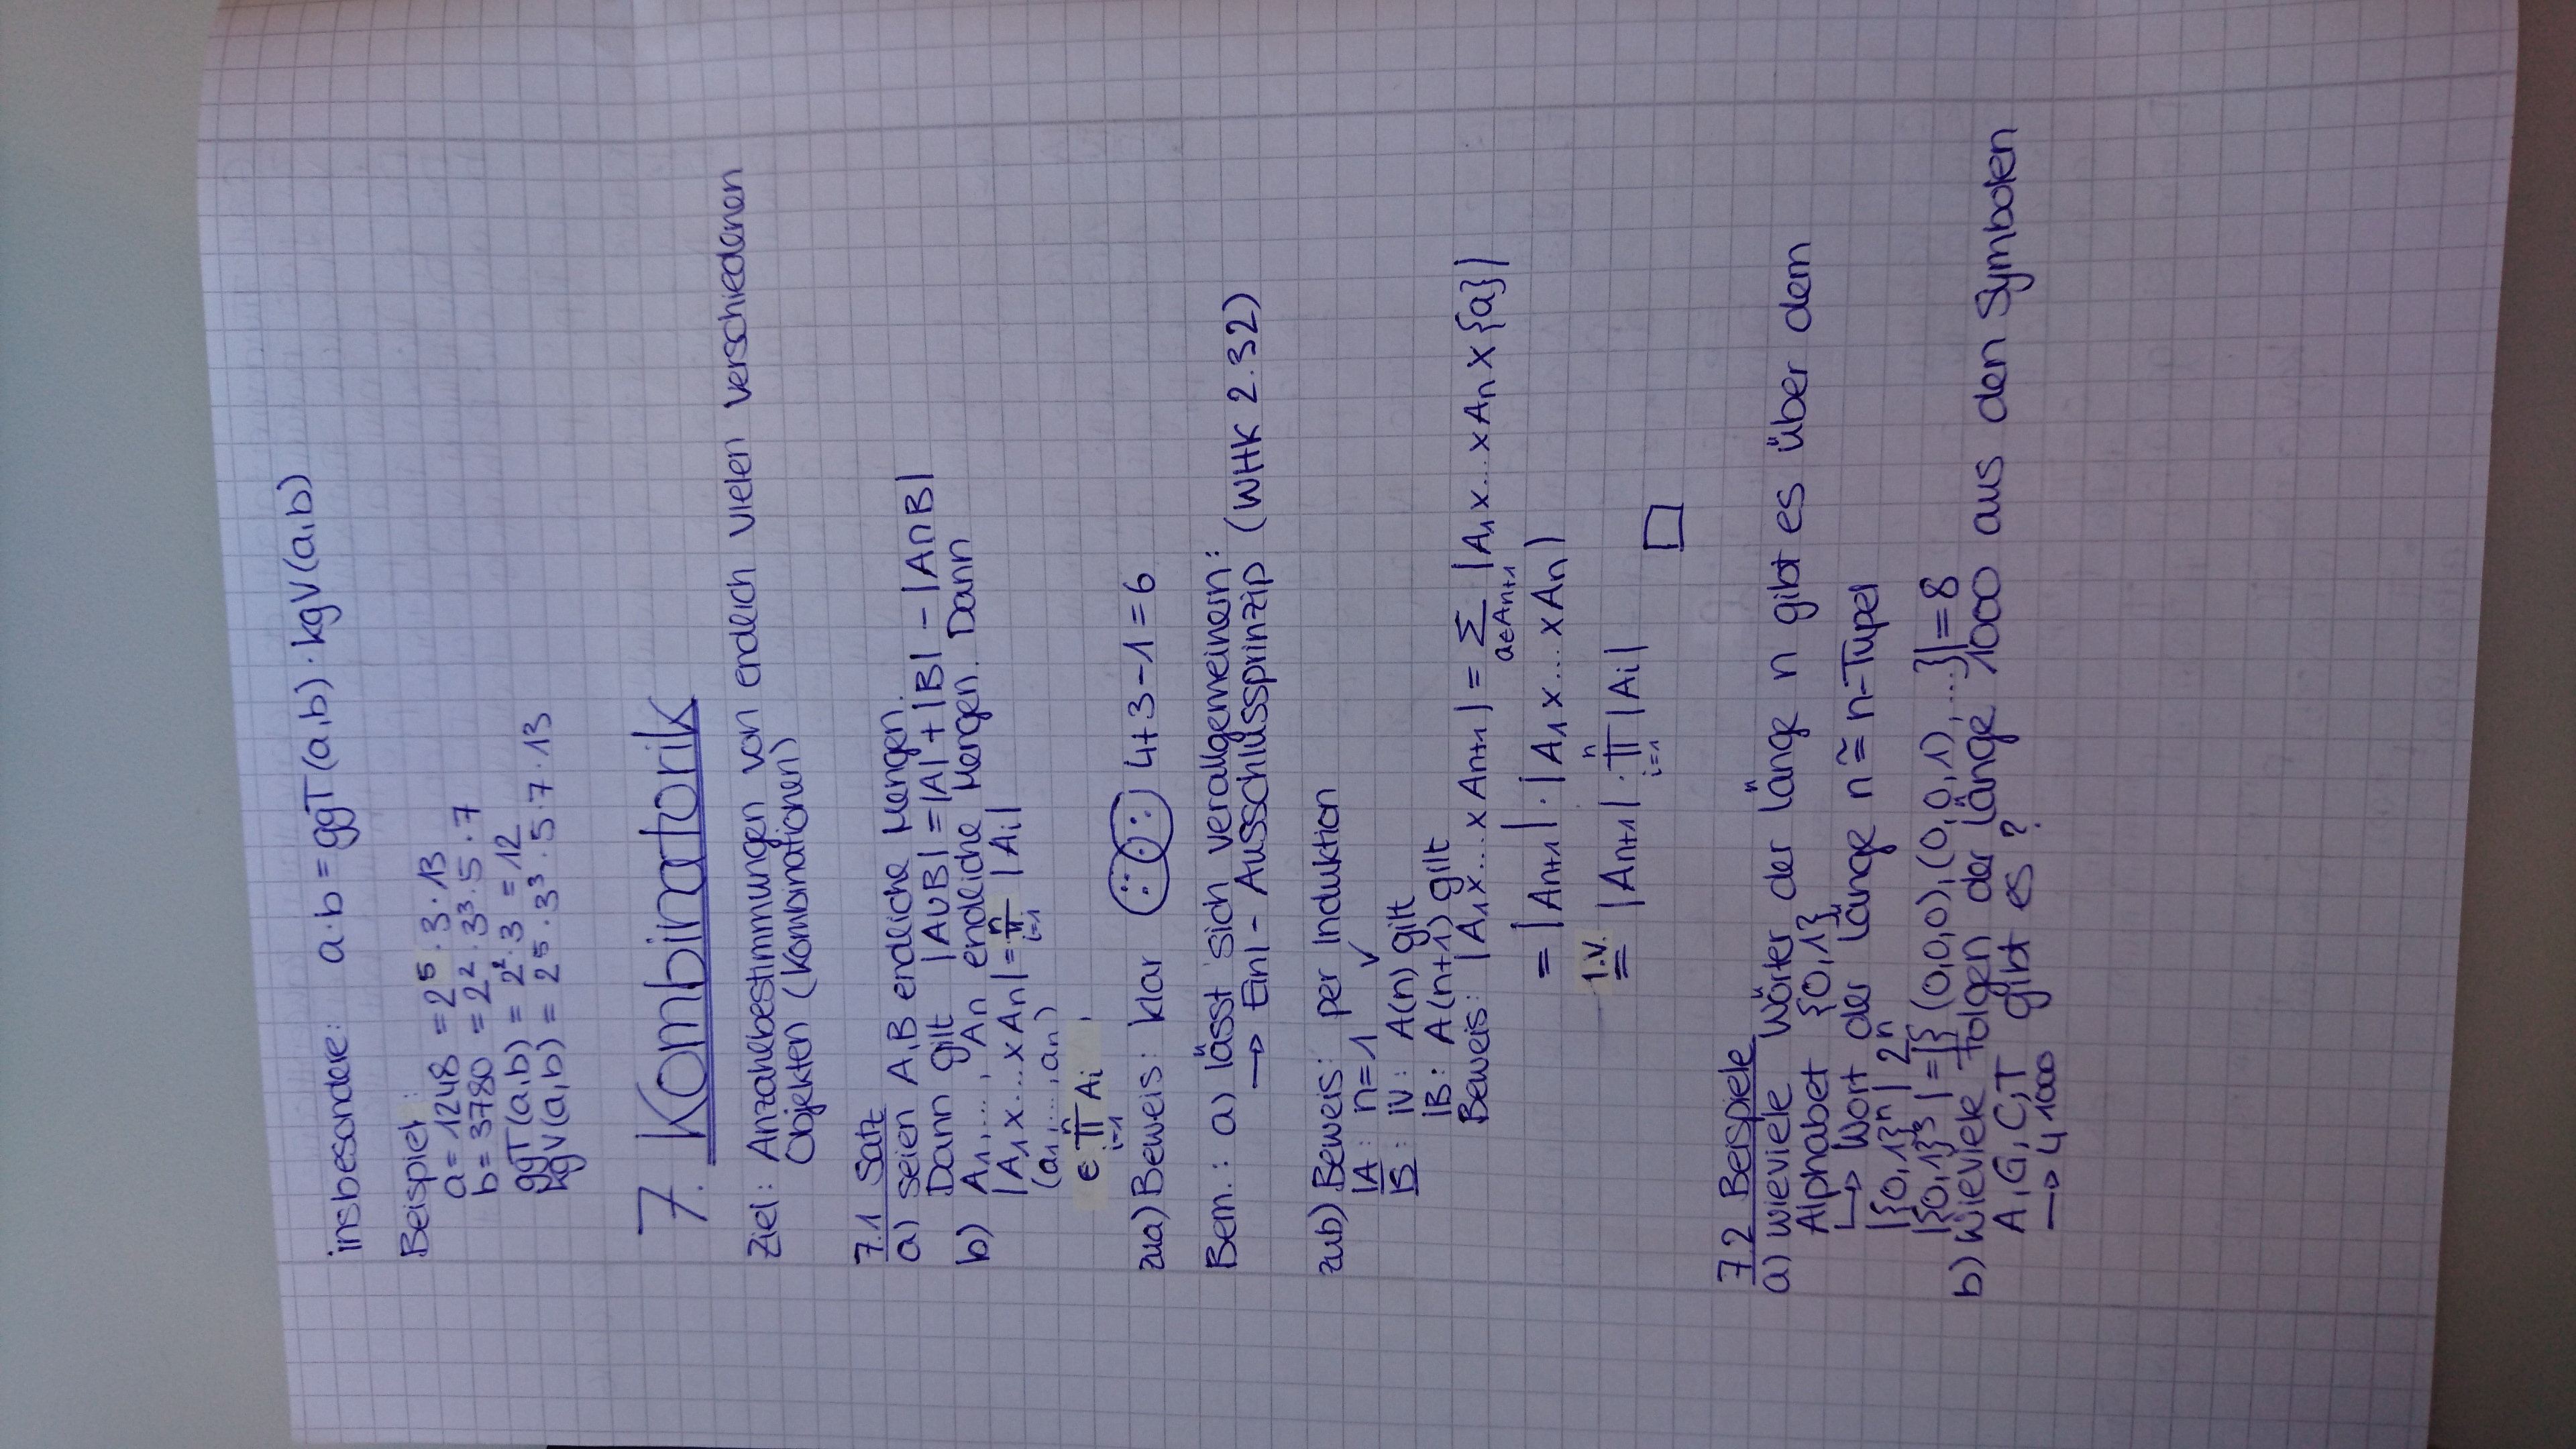 insbesondere: a·b = ggT(a,b)·kgV(a,b)
Beispiel:
a = 1248 = 2⁵·3·13
b = 3780 = 2²·3³·5·7
ggT(a,b) = 2²·3 = 12
kgV(a,b) = 2⁵·3³·5·7·13
7. Kombinatorik
Ziel: Anzahlbestimmungen von endlich vielen verschiedenen
Objekten (Kombinationen)
7.1 Satz
a) seien A,B endliche Mengen.
Dann gilt |A∪B| = |A| + |B| - |A∩B|
b) A₁,..., Aₙ endliche Mengen. Dann
|A₁×...×Aₙ| = ∏ⁿᵢ₌₁ |Aᵢ|
(a₁,...,aₙ)
∈ ∏ⁿᵢ₌₁ Aᵢ
zu a) Beweis: klar 4+3-1=6
Bem.: a) lässt sich verallgemeinern:
→ Einl - Ausschlussprinzip (WHK 2.32)
zu b) Beweis: per Induktion
IA: n=1 ✓
IS: IV: A(n) gilt
IB: A(n+1) gilt
Beweis: |A₁×...×Aₙ₊₁| = Σ a∈Aₙ₊₁ |A₁×...×Aₙ×{a}|
= |Aₙ₊₁|·|A₁×...×Aₙ|
I.V. = |Aₙ₊₁|·∏ⁿᵢ₌₁ |Aᵢ|
□
7.2 Beispiele
a) wieviele Wörter der länge n gibt es über dem
Alphabet {0,1}
↳ Wort der länge n ≅ n-Tupel
|{0,1}ⁿ| 2ⁿ
|{0,1}³| = |{(0,0,0),(0,0,1),...}| = 8
b) Wieviele Folgen der länge 1000 aus den Symbolen
A,G,C,T gibt es?
→ 4¹⁰⁰⁰